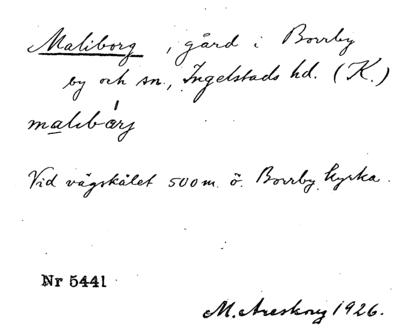 Maliborg, gård i Borrby
by och sn., Ingelstads hd. (K.)
malibårj
Vid vägskälet 500 m. ö. Borrby kyrka.
Nr 5441
M. Areskoug 1926.